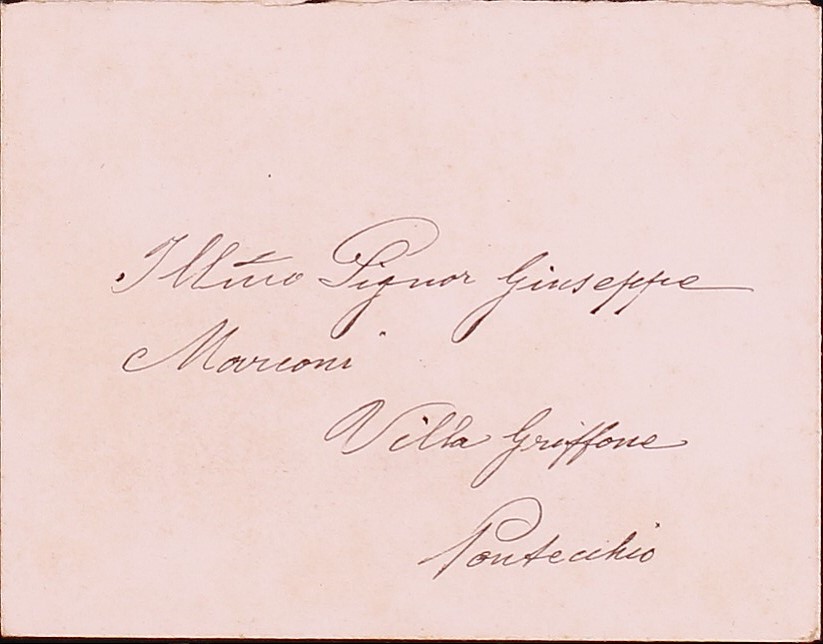 Illmo Signor Giuseppe
Marconi
Villa Griffone
Pontecchio